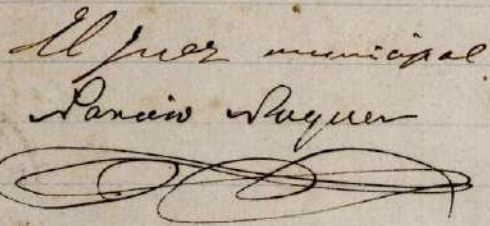 El Juez municipal
Narciso Nuguer